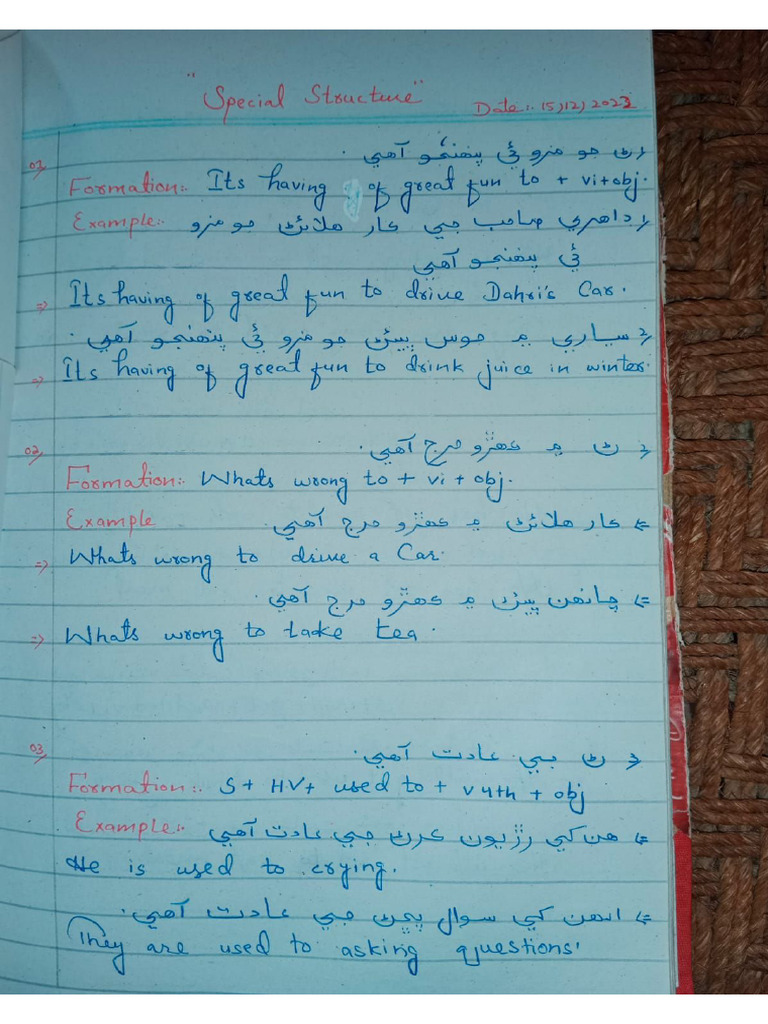 "Special Structure"
Date:. 15/12/2023
01) ڻ جو مزو ئي پنهنجو آهي.
Formation:. Its having of great fun to + vi+obj.
Example:. ڏاهري صاحب جي ڪار هلائڻ جو مزو
ئي پنهنجو آهي
⇒ Its having of great fun to drive Dahri's Car.
سياري ۾ جوس پيئڻ جو مزو ئي پنهنجو آهي.
⇒ Its having of great fun to drink juice in winter.
02) ڻ ۾ ڪهڙو حرج آهي.
Formation:. Whats wrong to + vi + obj.
Example ڪار هلائڻ ۾ ڪهڙو حرج آهي.
⇒ Whats wrong to drive a Car.
چانهن پيئڻ ۾ ڪهڙو حرج آهي.
⇒ Whats wrong to take tea.
03) ڻ جي عادت آهي.
Formation:. S + HV + used to + v 4th + obj
Example:. هن کي رڙيون ڪرڻ جي عادت آهي
He is used to crying.
انهن کي سوال پڇڻ جي عادت آهي.
They are used to asking questions.